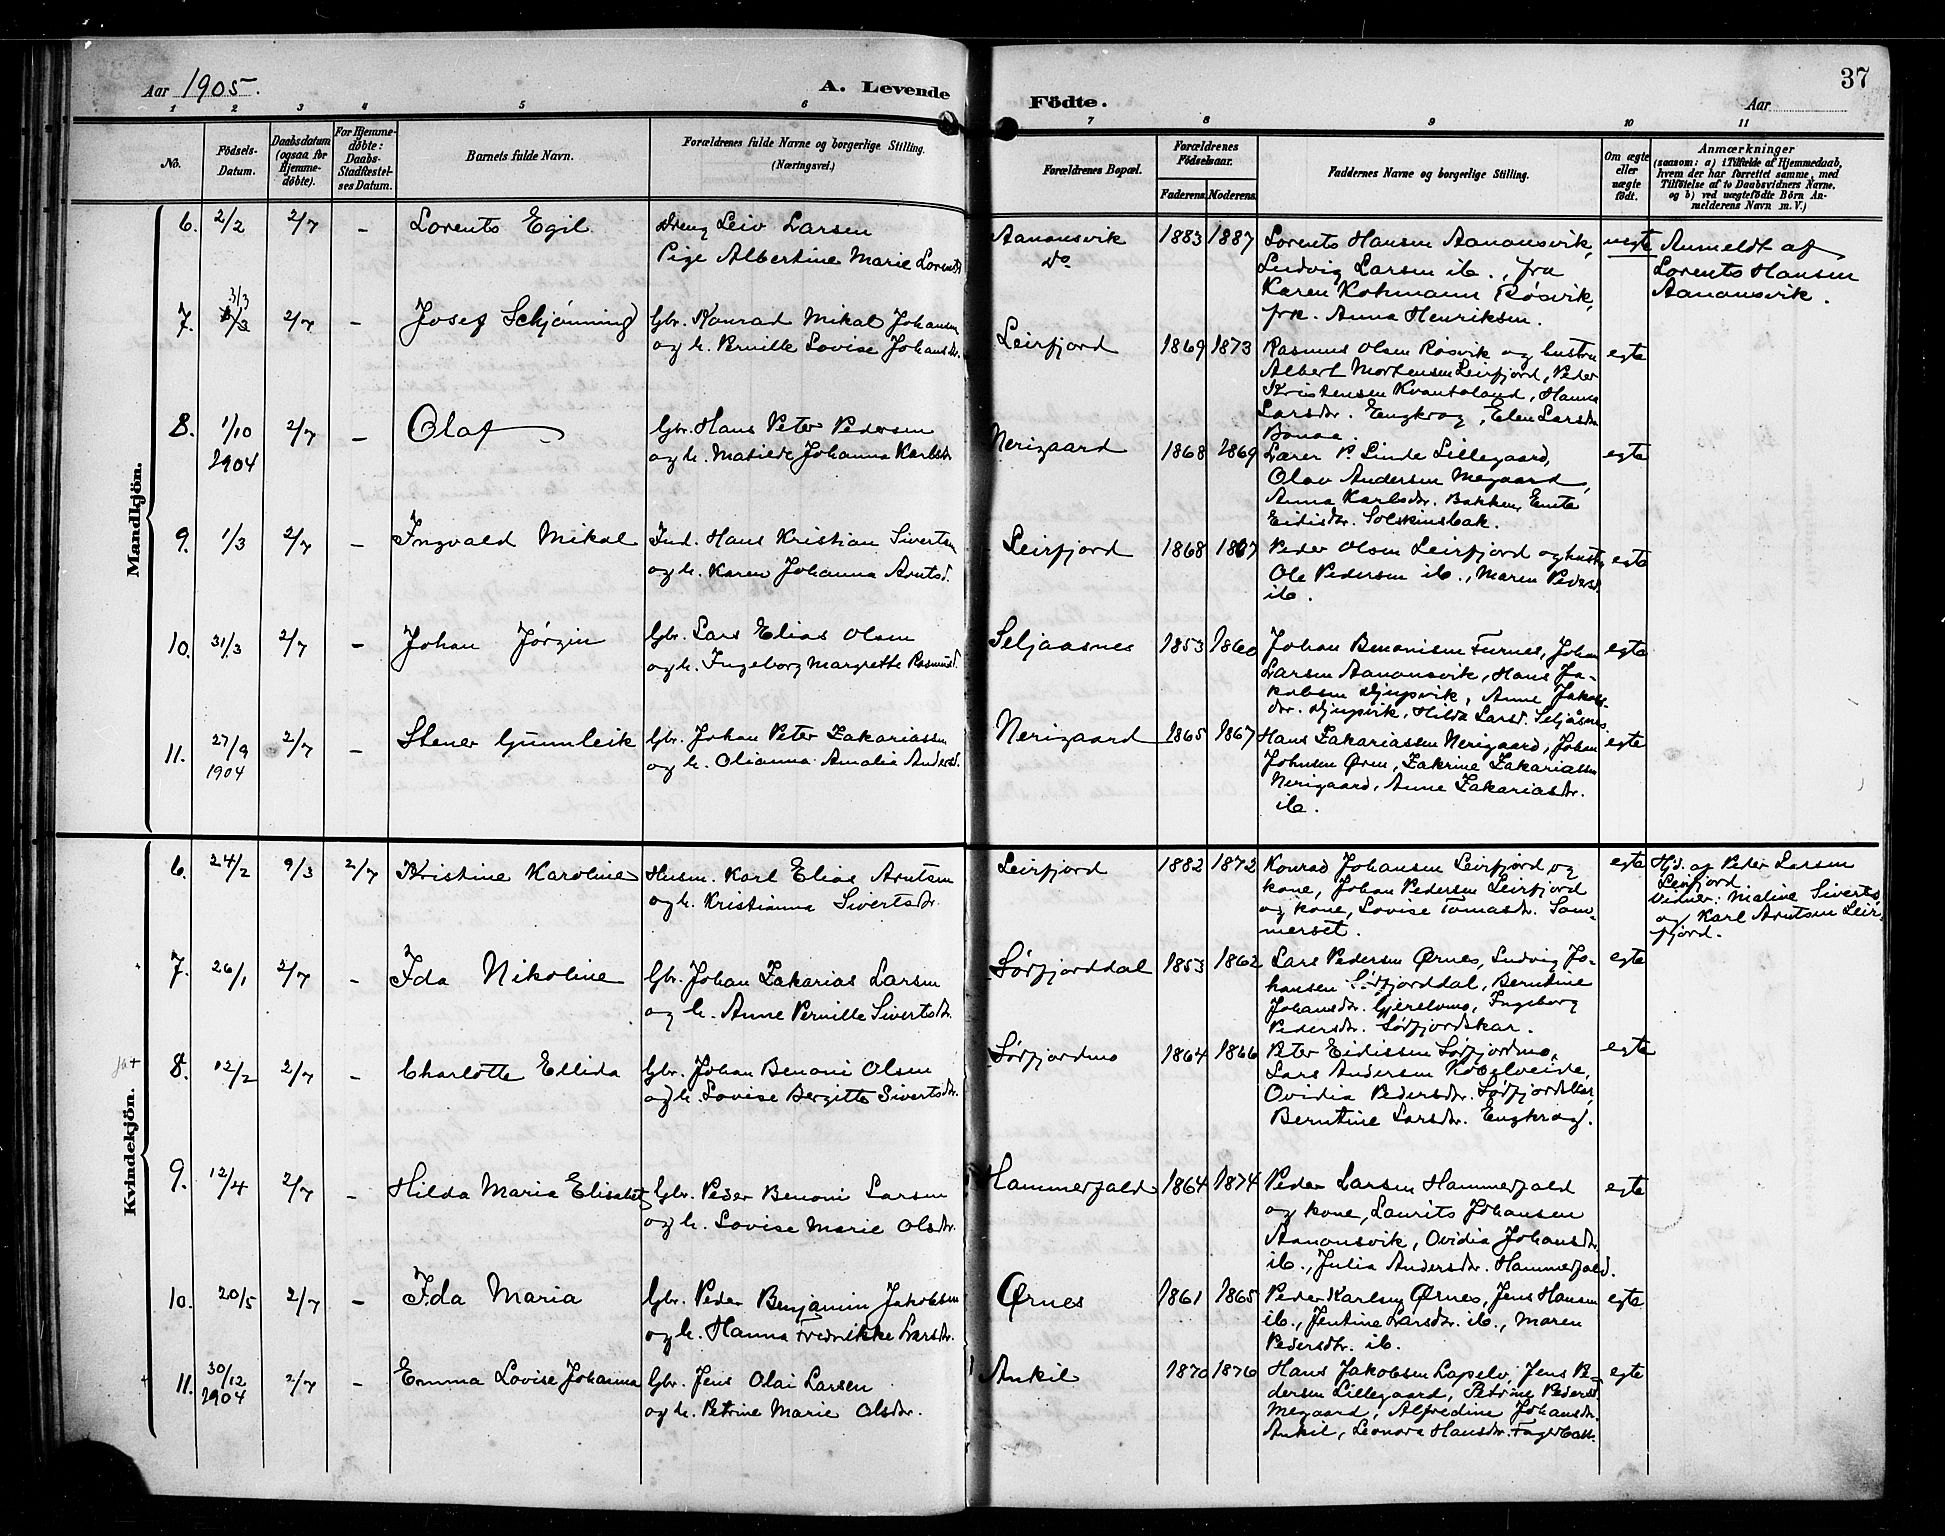 Aar 1905.
A. Levende Födte.
37
Aar
1 2 3 4 5 6 7 8 9 10 11
No.
Födsels-Datum.
Daabsdatum (ogsaa for Hjemme-döbte).
For Hjemme-döbte: Daabs-Stadfæstel-ses Datum.
Barnets fulde Navn.
Forældrenes fulde Navne og borgerlige Stilling. (Næringsvei.)
Forældrenes Bopæl.
Forældrenes Födselsaar.
Faderens. Moderens.
Faddernes Navne og borgerlige Stilling.
Om ægte eller uægte födt.
Anmærkninger
(saasom: a) i Tilfælde af Hjemmedaab,
hvem der har forrettet samme, med
Tilföielse af to Daabsvidners Navne,
og b) ved uægtefödte Börn An-
melderens Navn m. V.)
Mandkjön.
6. 2/2 2/7 – Lorents Egil
Dreng Leiv Larsen
Pige Albertine Marie Lorents
Aanonsvik
Do
1883 1887
Lorents Hansen Aanonsvik,
Ludvig Larsen ib., fru
Karen Kohmann Røsvik,
frk. Anna Henriksen.
uegte
Anmeldt af
Lorents Hansen
Aanonsvik.
7. 3/3 2/7 – Josef Schjønning
Gbr. Konrad Mikal Johansen
og h. Pernille Lovise Johansdr.
Leirfjord
1869 1873
Rasmus Olsen Røsvik og hustru
Albert Mortensen Leirfjord, Peder
Kristensen Kvantoland, Hanna
Larsdr. Engkrog, Elen Larsdr.
Bonaa.
egte
8. 1/10 1904 2/7 – Olaf
Gbr. Hans Peter Pedersen
og h. Matilde Johanna Karlsdr.
Nerigaard
1868 1869
Lærer P. Linde Lillegaard,
Olav Andersen Megaard,
Anna Karlsdr. Bakken,
Eidisdr. Solskinsbak.
egte
9. 1/3 2/7 – Ingvald Mikal
Ind. Hans Kristian Sivertsen
og h. Karen Johanna Arntsd.
Leirfjord
1868 1867
Peder Olsen Leirfjord og hustr.
Ole Pedersen ib., Maren Pedersd.
ib.
egte
10. 31/3 2/7 – Johan Jørgin
Gbr. Lars Elias Olsen
og h. Ingeborg Margrethe Rasmusd.
Seljaasnes
1853 1860
Johan Benonisen Furnes, Johan
Larsen Aanonsvik, Hans Ja-
kobsen Djupvik, Anne Jakobs-
dr. Djupvik, Hilda Larsd. Seljåsnes.
egte
11. 27/9 1904 2/7 – Stener Gunnleik
Gbr. Johan Peter Zakariassen
og h. Olianna Amalia Andersd.
Nerigaard
1865 1867
Hans Zakariassen Nerigaard, Johan
Johnsen Øren, Zakrine Zakariassen
Nerigaard, Anne Zakariasdr.
ib.
egte
Kvindekjön.
6. 24/2 9/3 2/7 Kristine Karoline
Husm. Karl Elias Arntsen
og h. Kristianna Sivertsdr.
Leirfjord
1882 1872
Konrad Johansen Leirfjord og
kone, Johan Pedersen Leirfjord
og kone, Lovise Tomasdr. Som-
merset.
egte
Hjd. af Peder Larsen
Leirfjord.
Vidner: Maline Siverts.
og Karl Arntsen Leir-
fjord.
7. 26/1 2/7 – Ida Nikoline
Gbr. Johan Zakarias Larsen
og h. Anne Pernille Sivertsdr.
Sørfjorddal
1853 1862
Lars Pedersen Ørnes, Ludvig Jo-
hansen Sørfjorddal, Berntine
Johansdr. Gjerelvmo, Ingeborg
Pedersdr. Sørfjordskar.
egte
8. 12/2 2/7 – Charlotte Ellida
Gbr. Johan Benoni Olsen
og h. Lovise Bergitte Sivertsdr.
Sørfjordmo
1864 1866
Peter Eidissen Sørfjordmo,
Lars Andersen Kobelveide,
Ovidia Pedersdr. Sørfjordskar,
Berntine Larsdr. Engkrog.
egte
9. 12/4 2/7 – Hilda Maria Elisabet
Gbr. Peder Benoni Larsen
og h. Lovise Marie Olsdr.
Hammerfald
1864 1874
Peder Larsen Hammerfald
og kone, Laurits Johansen
Aanonsvik, Ovidia Johansdr.
ib., Julia Andersdr. Hammerfald.
egte
10. 20/5 2/7 – Ida Maria
Gbr. Peder Benjamin Jakobsen
og h. Hanna Fredrikke Larsdr.
Ørnes
1861 1865
Peder Karlsen Ørnes, Jens Hansen
ib., Jentine Larsdr. ib., Maren
Pedersdtr. ib.
egte
11. 30/12 1904 2/7 – Emma Lovise Johanna
Gbr. Jens Olai Larsen
og h. Petrine Marie Olsdr.
Ankil
1870 1876
Hans Jakobsen Lapelv, Jens Pe-
dersen Lillegaard, Petrine Pedersd.
Megaard, Alfredine Johansdr.
Ankil, Leonora Hansdr. Fagerbakk.
egte